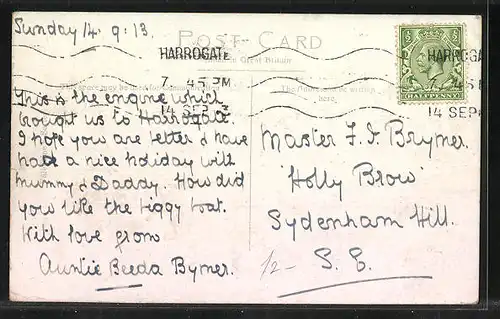 Sunday 14. 9. 13.
POST CARD
HARROGATE
7 45 PM
14 SEP
Great Britain
HARROGATE
14 SEP
This is the engine which
brought us to Harrogate.
I hope you are better & have
had a nice holiday with
Mummy & Daddy. How did
you like the biggy boat.
With love from
Auntie Beeda Bymer.
Master F. J. Brymer.
'Holly Brow'
Sydenham Hill.
S. E.